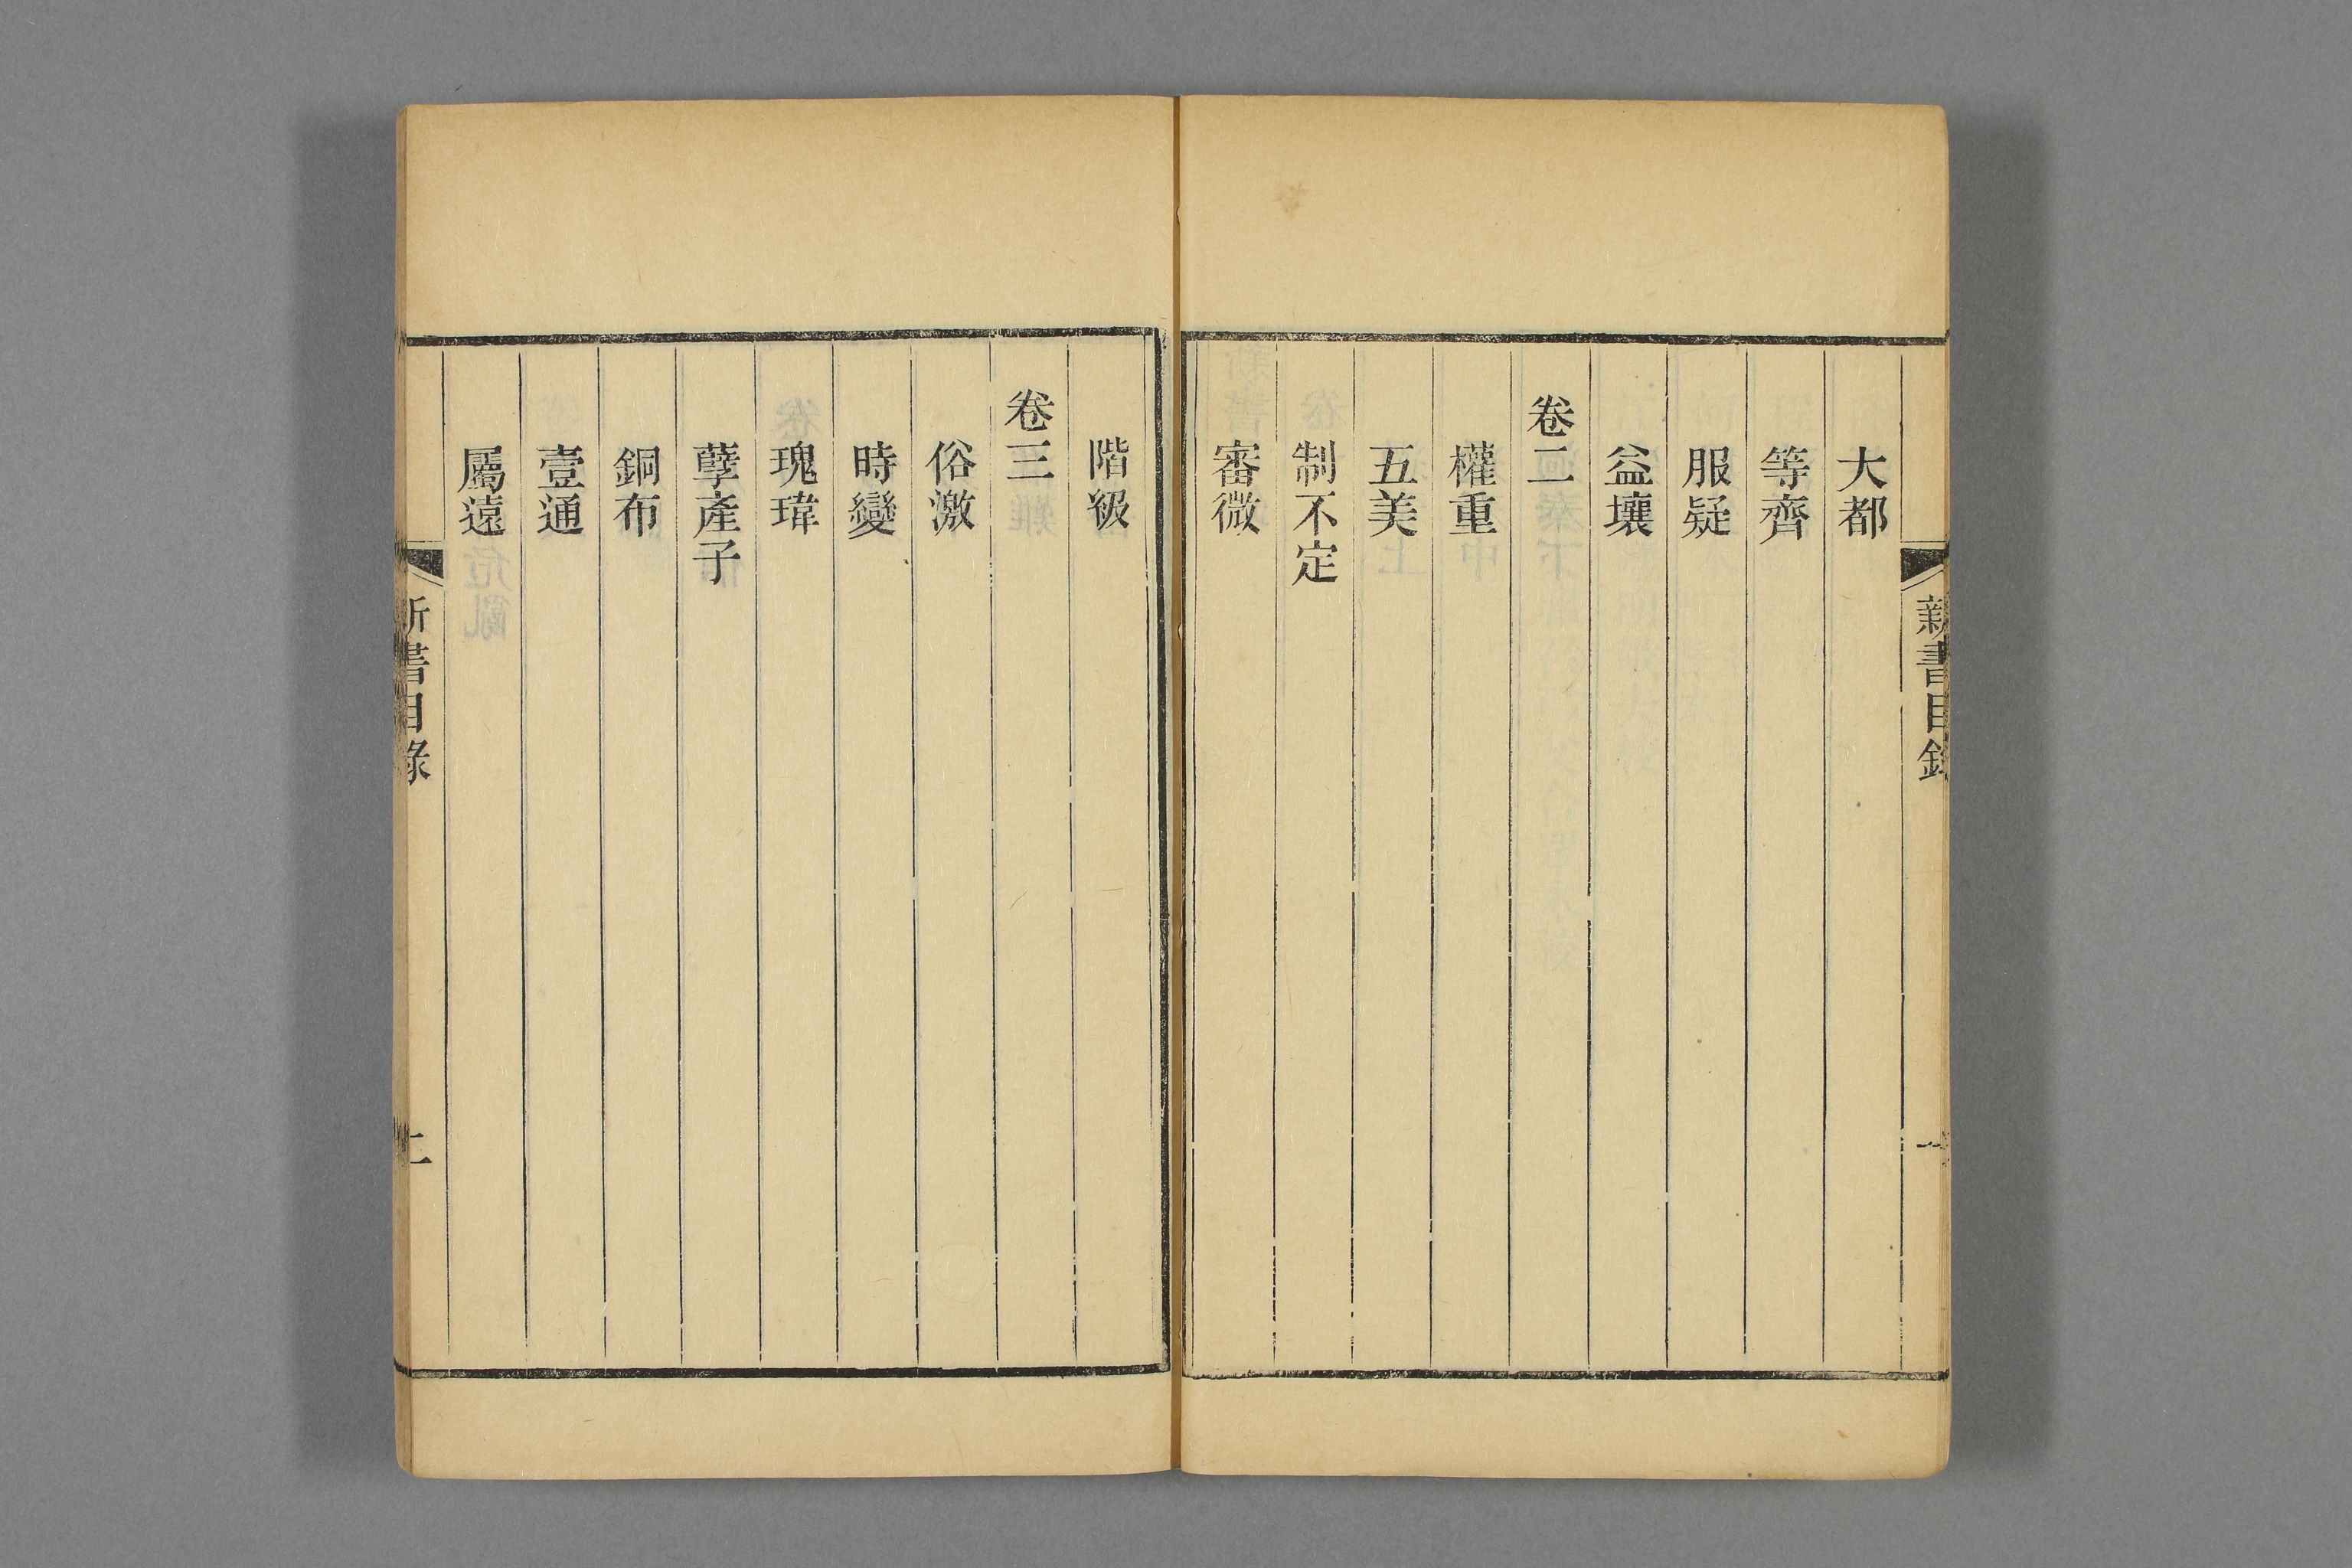 新書目錄
一
大都
等齊
服疑
益壤
卷二
權重
五美
制不定
審微
階級
卷三
俗激
時變
瑰瑋
孽產子
銅布
壹通
屬遠
新書目錄
二